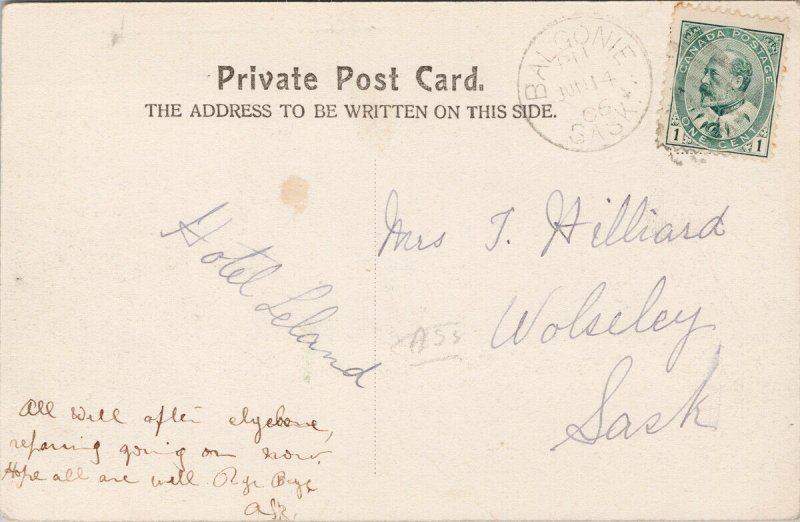 Private Post Card.
THE ADDRESS TO BE WRITTEN ON THIS SIDE.
BALGONIE
PM
JUN 14
06
SASK.
CANADA POSTAGE
1 ONE CENT 1
Hotel Leland
Mrs T. Hilliard
Wolseley
Sask
All well after
going on now.
Hope all are well.